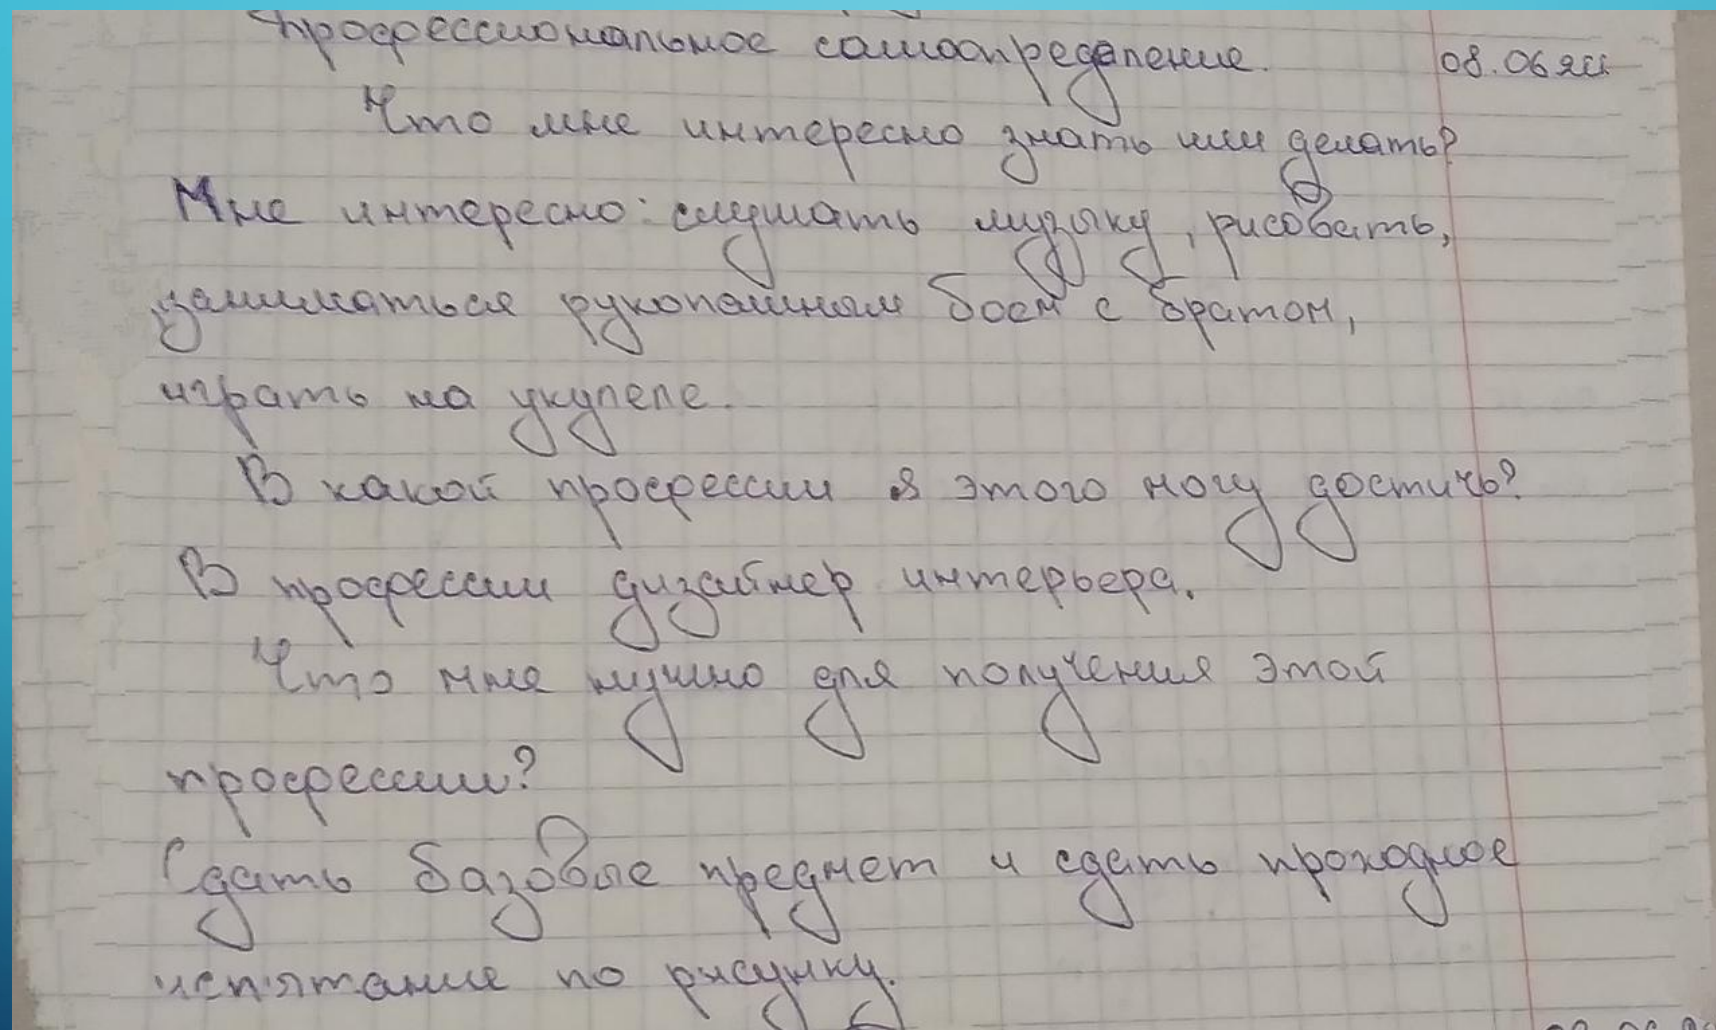 Профессиональное самоопределение. 08.06
Что мне интересно знать или делать?
Мне интересно: слушать музыку, рисовать,
заниматься рукопашным боем с братом,
играть на укулеле.
В какой профессии я этого могу достичь?
В профессии дизайнер интерьера.
Что мне нужно для получения этой
профессии?
Сдать базовые предмет и сдать проходное
испятание по рисунку.